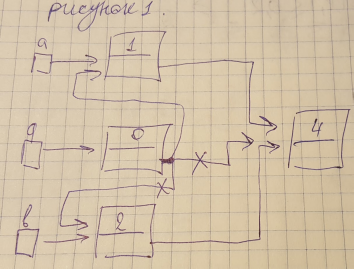 рисунок 1.
а 1
4
д 0
в 2